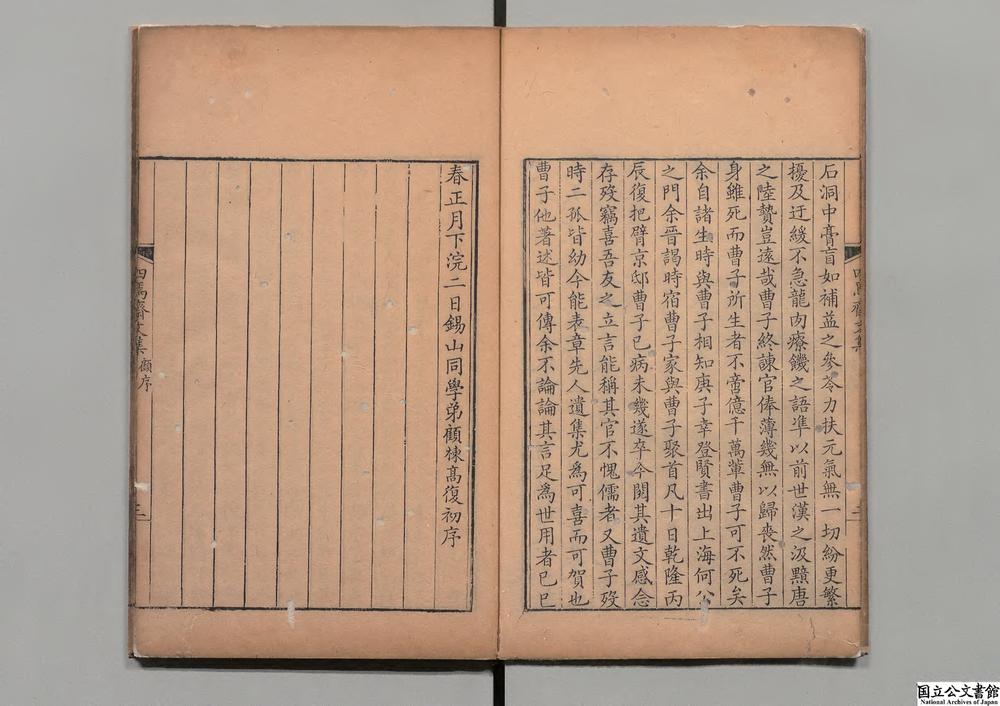 石洞中膏肓如補益之參苓力扶元氣無一切紛更繁
擾及迂緩不急龍肉療饑之語準以前世漢之汲黯唐
之陸贄豈遠哉曹子終諫官俸薄幾無以歸喪然曹子
身雖死而曹子所生者不啻億千萬軰曹子可不死矣
余自諸生時與曹子相知庚子幸登賢書出上海何公
之門余晉謁時宿曹子家與曹子聚首凡十日乾隆丙
辰復把臂京邸曹子已病未幾遂卒今閱其遺文感念
存歿竊喜吾友之立言能稱其官不愧儒者又曹子歿
時二孤皆幼今能表章先人遺集尤爲可喜而可賀也
曹子他著述皆可傳余不論論其言足爲世用者已巳
四焉齋文集
三
春正月下浣二日錫山同學弟顧棟高復初序
四焉齋文集
顧序
三
国立公文書館
National Archives of Japan